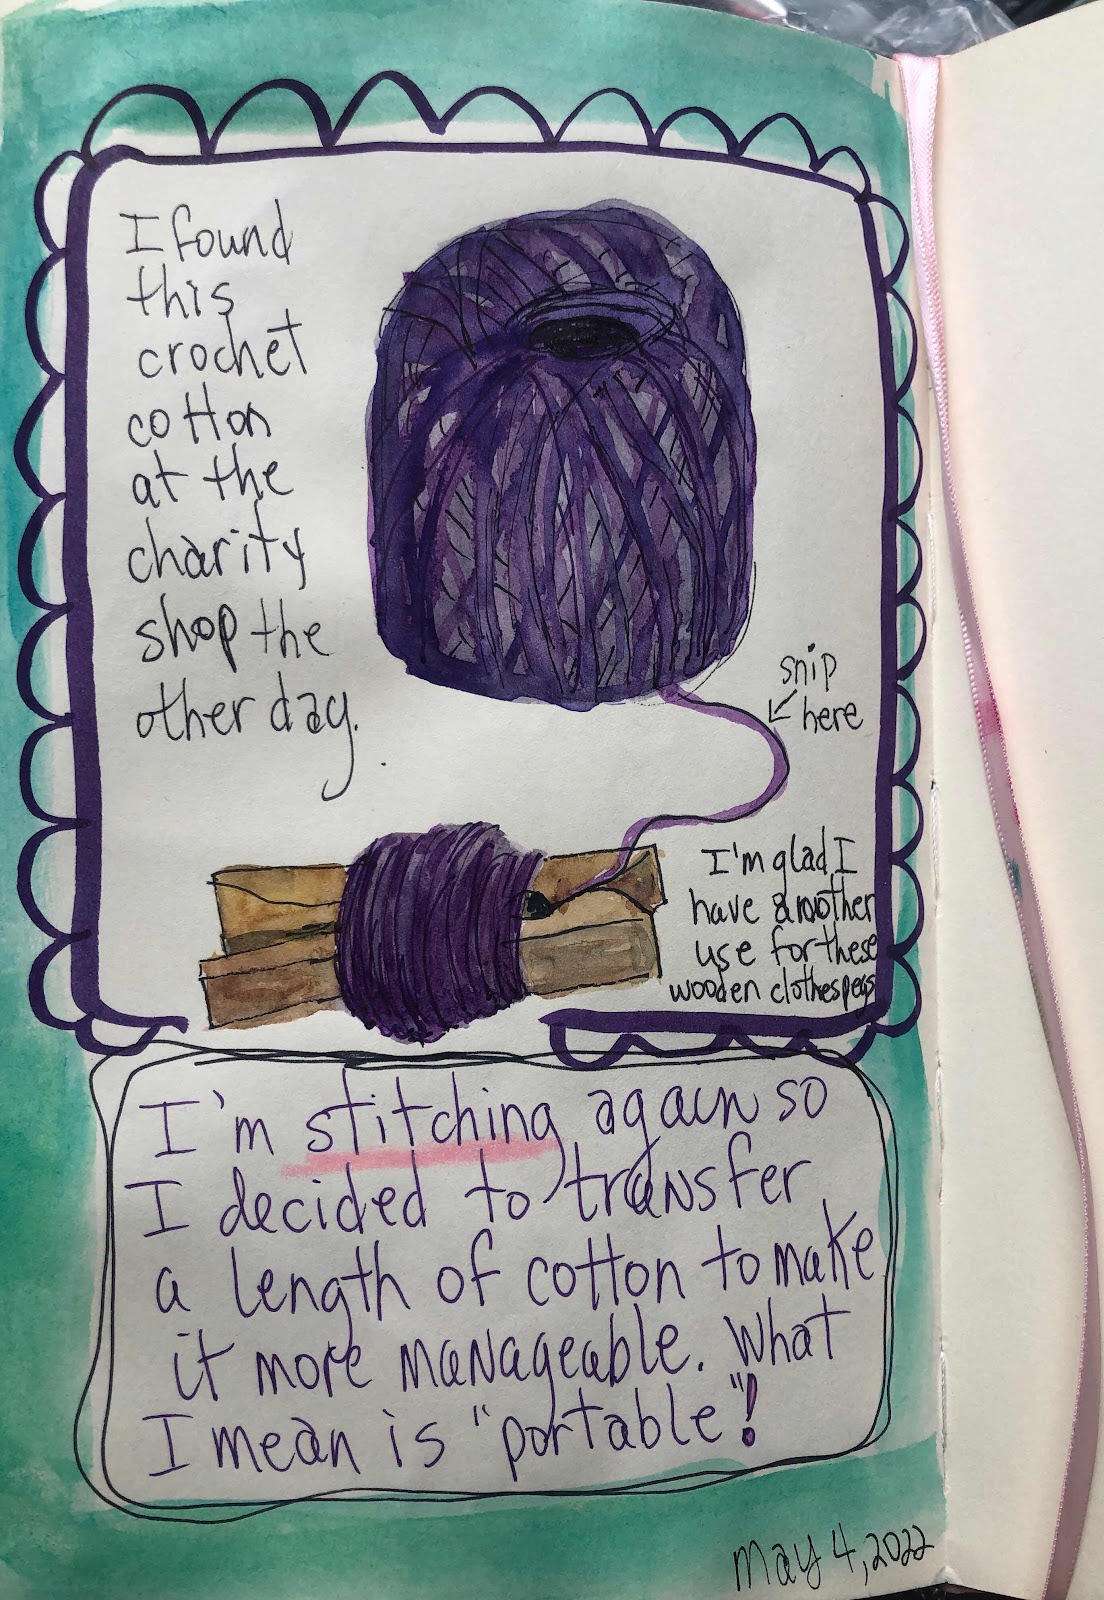 I found
this
crochet
cotton
at the
charity
shop the
other day.
snip
here
I'm glad I
have another
use for these
wooden clothespegs
I'm stitching again so
I decided to transfer
a length of cotton to make
it more manageable. What
I mean is "portable"!
May 4, 2022